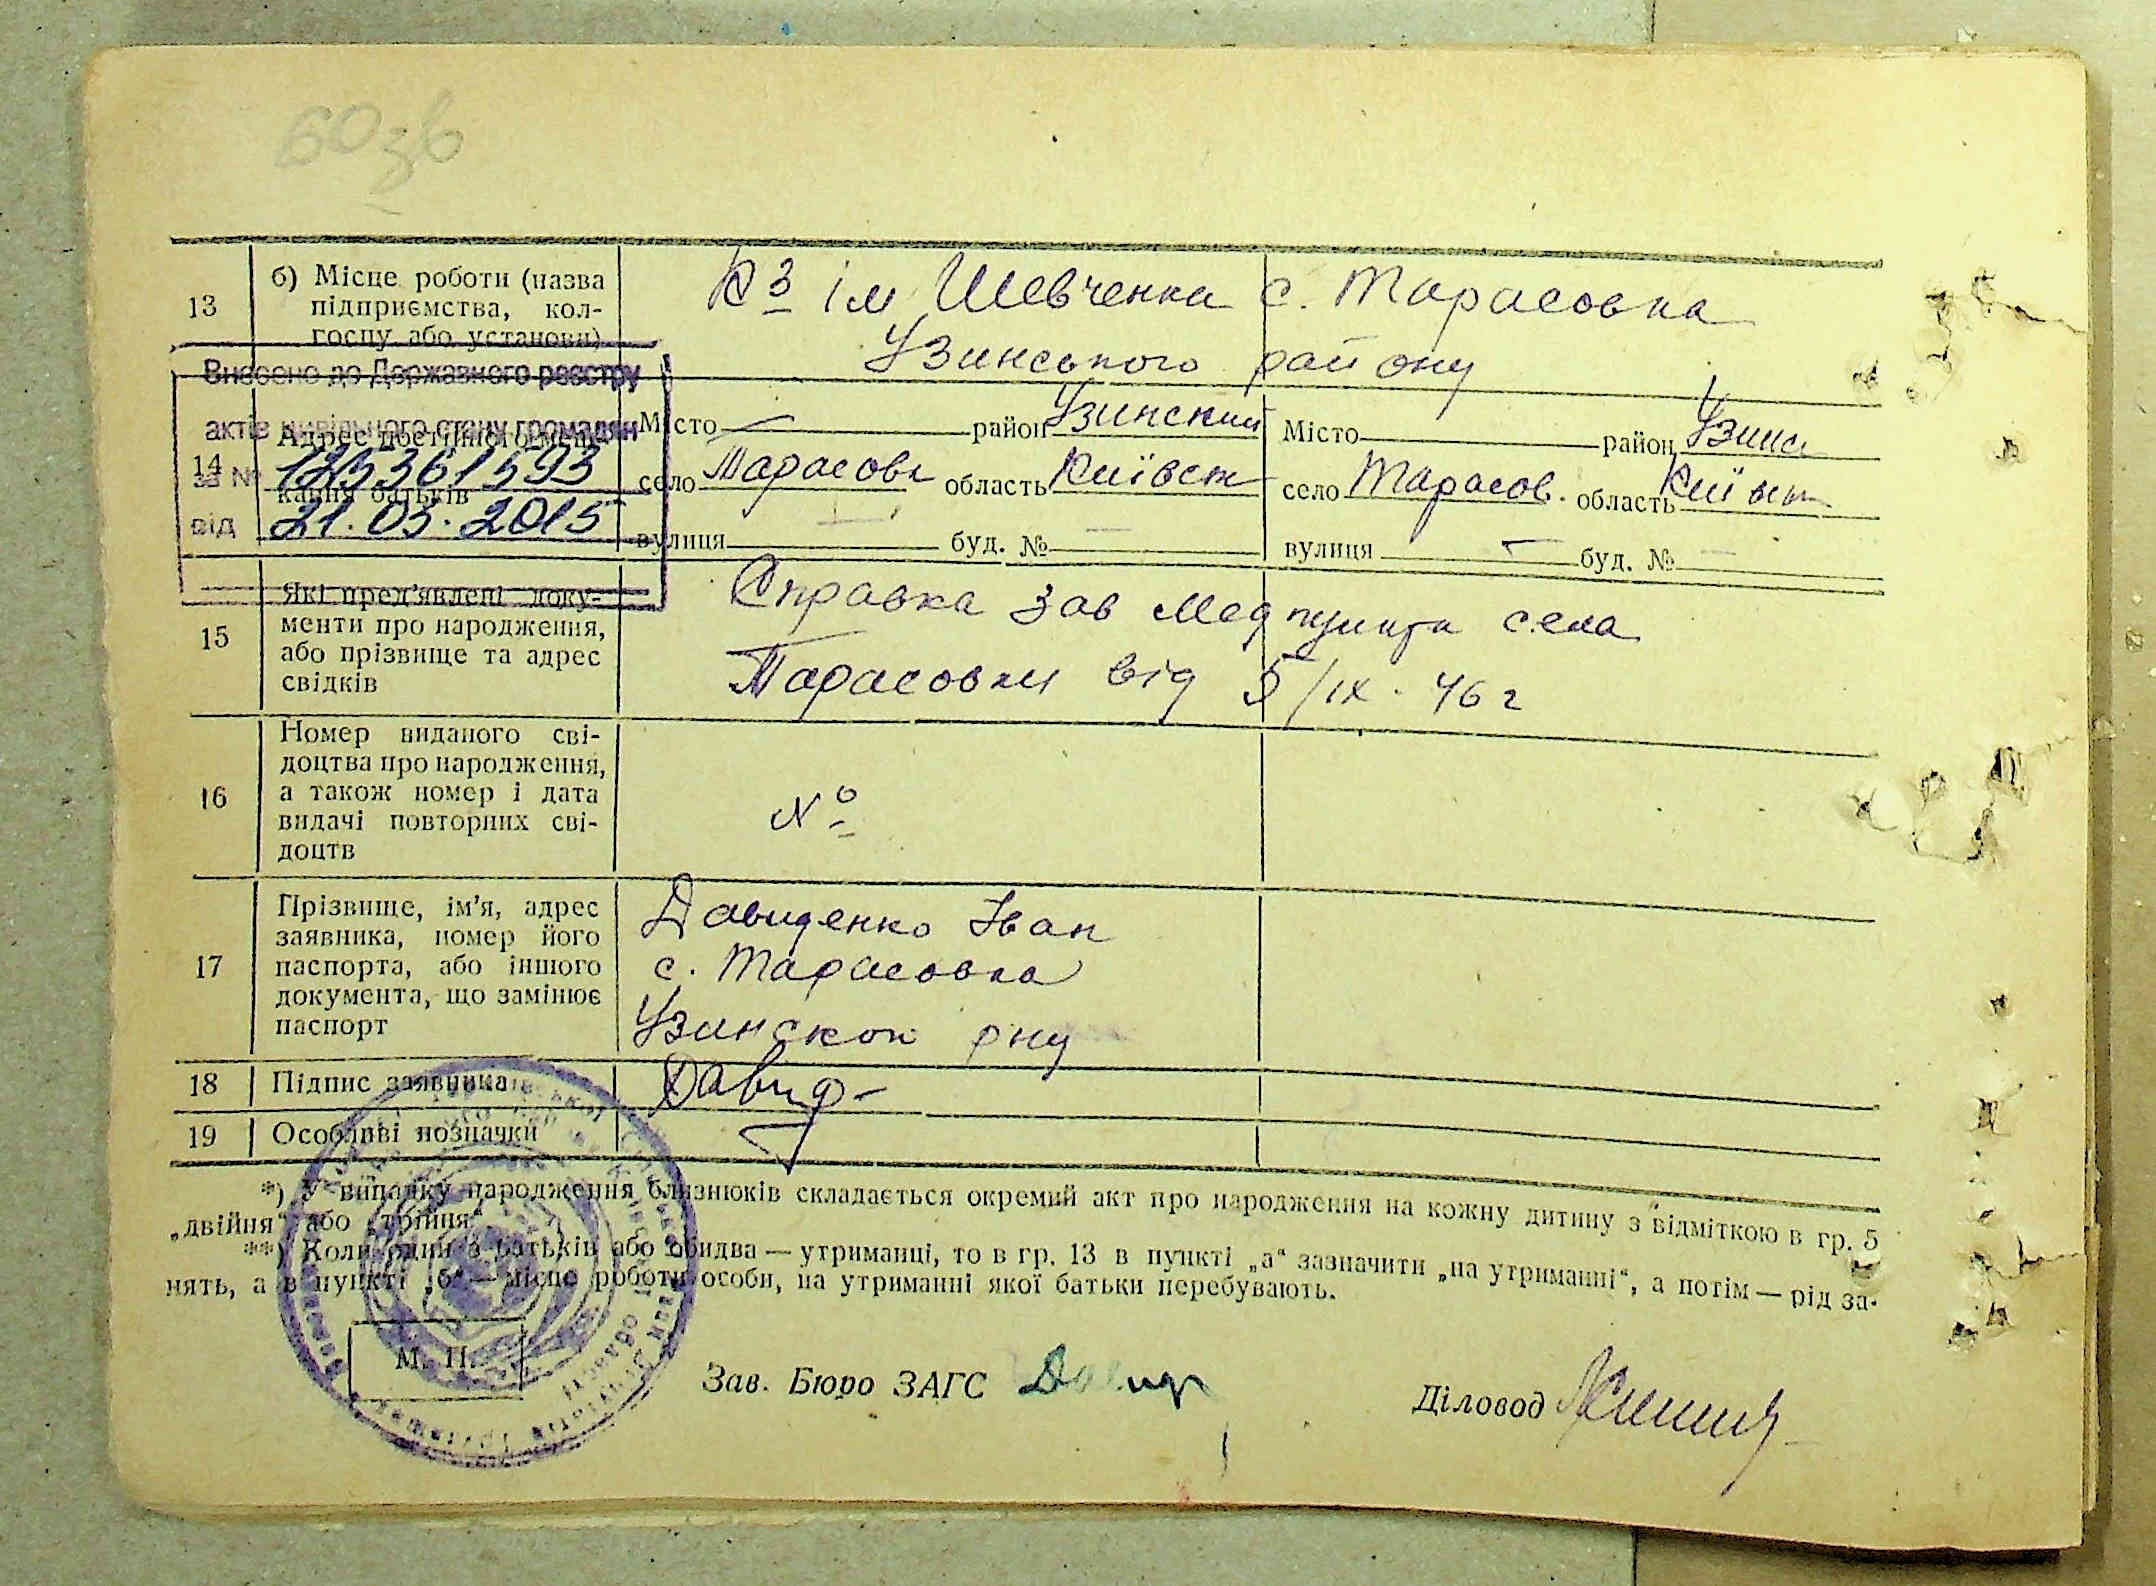 60 зв
13
б) Місце роботи (назва
підприємства, кол-
госпу або установи)
К З ім Шевченка с. Тарасовка
Узинського району
Внесено до Державного реєстру
актів цивільного стану громадян
за № 1253361593
від 21.03.2015
14
Адрес постійного меш-
кання батьків
Місто — район Узинский
село Тарасовк область Київск
вулиця — буд. № —
Місто район Узинс
село Тарасов. область
вулиця — буд. № —
15
Які пред'явлені доку-
менти про народження,
або прізвище та адрес
свідків
Справка Зав Медпункта села
Тарасовки від 5/IX. 46 г
16
Номер виданого сві-
доцтва про народження,
а також номер і дата
видачі повторних сві-
доцтв
№
17
Прізвище, ім'я, адрес
заявника, номер його
паспорта, або іншого
документа, що замінює
паспорт
Давиденко Іван
с. Тарасовка
Узинскои рну
18
Підпис заявника
Давид-
19
Особливі позначки
*) У випадку народження близнюків складається окремий акт про народження на кожну дитину з відміткою в гр. 5
„двійня“ або „трійня“.
**) Коли один з батьків або обидва — утриманці, то в гр. 13 в пункті „а“ зазначити „на утриманні“, а потім — рід за-
нять, а в пункті „б“ — місце роботи особи, на утриманні якої батьки перебувають.
М. П.
Зав. Бюро ЗАГС
Діловод